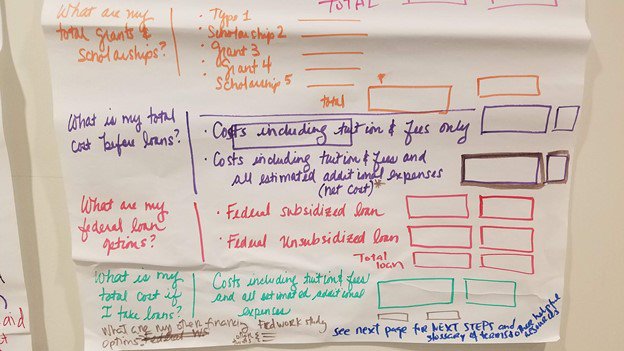 TOTAL
What are my
total grants &
scholarships?
• Type 1
• Scholarship 2
• Grant 3
• Grant 4
• Scholarship 5
total
What is my total
cost before loans?
• Costs including tuition & fees only
• Costs including tuition & fees and
all estimated additional expenses
(net cost)*
What are my
federal loan
options?
• Federal subsidized loan
• Federal Unsubsidized loan
Total
loan
What is my
total cost if
I take loans?
Costs including tuition & fees
and all estimated additional
expenses
What are my other financing
options?
Fed work study
see next page for NEXT STEPS and
glossary of terms
aid